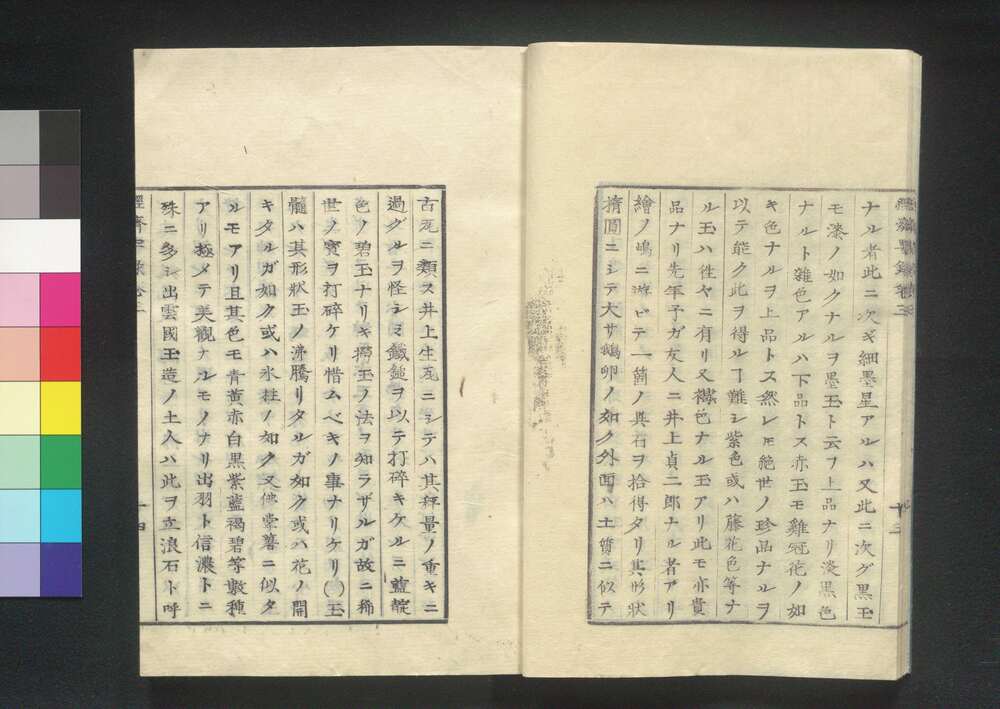 經濟要錄卷三
ナル者此ニ次ギ細墨星アルハ又此ニ次グ黒玉
モ漆ノ如クナルヲ墨玉ト云フ上品ナリ淡黒色
ナルト雜色アルハ下品トス赤玉モ雞冠花ノ如
キ色ナルヲ上品トス然レモ絶世ノ珍品ナルヲ
以テ能ク此ヲ得ルヿ難シ紫色或ハ藤花色等ナ
ル玉ハ徃々ニ有リ又褐色ナル玉アリ此モ亦貴
品ナリ先年予ガ友人ニ井上貞二郎ナル者アリ
繪ノ嶋ニ游ビテ一箇ノ異石ヲ拾得タリ其形狀
撱圓ニシテ大サ鵝卵ノ如ク外面ハ土質ニ似テ
十三
古瓦ニ類ス井上生瓦ニシテハ其秤量ノ重キニ
過グルヲ怪シミ鐵鎚ヲ以テ打碎キケルニ藍靛
色ノ碧玉ナリキ攻玉ノ法ヲ知ラザルガ故ニ稀
世ノ寳ヲ打碎ケリ惜ムベキノ事ナリケリ()玉
髓ハ其形狀玉ノ沸騰リタルガ如ク或ハ花ノ開
キタルガ如ク或ハ氷柱ノ如ク又佛掌薯ニ似タ
ルモアリ且其色モ青黄赤白黒紫藍褐碧等數種
アリ極メテ美觀ナルモノナリ出羽ト信濃トニ
殊ニ多シ出雲國玉造ノ土人ハ此ヲ立浪石ト呼
經濟要錄卷三
十四